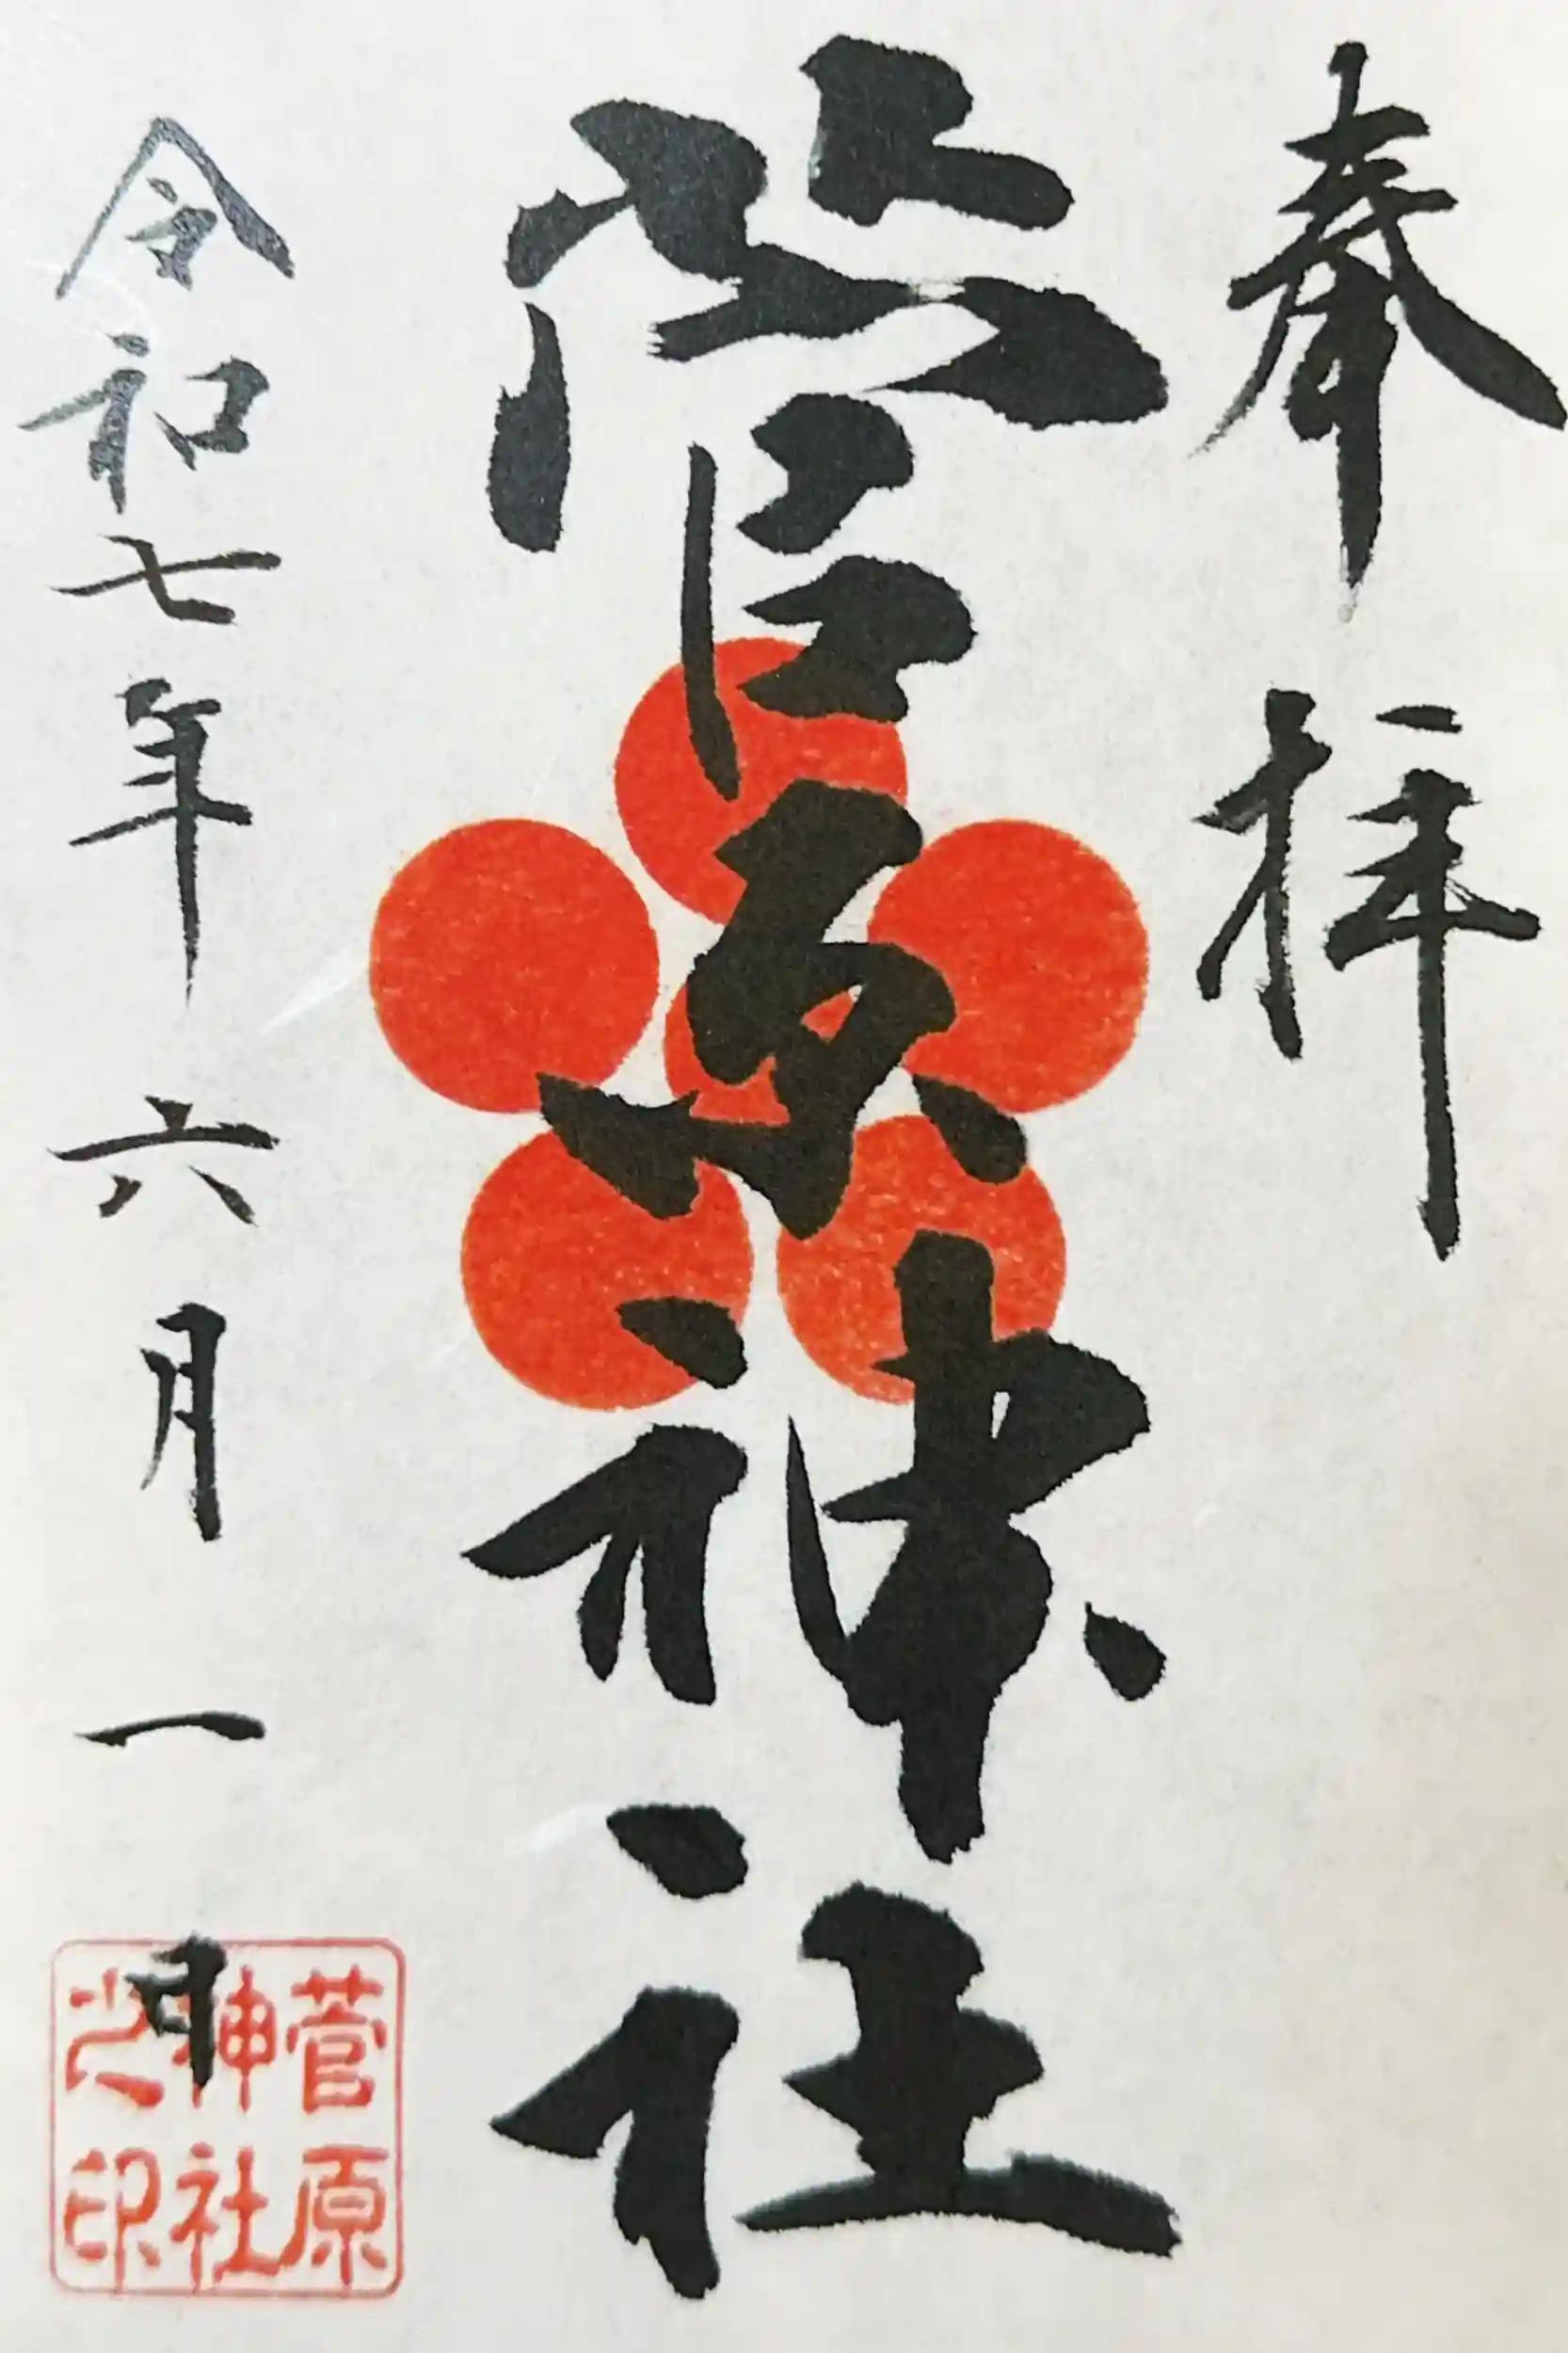 奉拝
菅原神社
令和七年六月一日
菅原
神社
之印